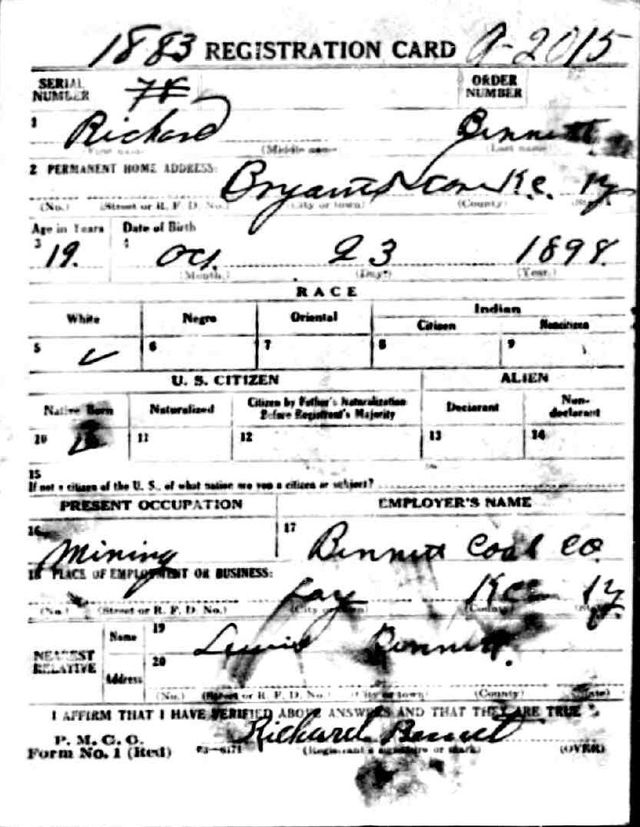 1883 REGISTRATION CARD A-2015
SERIAL NUMBER ORDER NUMBER
1 Richard Bennett
(First name) (Middle name) (Last name)
2 PERMANENT HOME ADDRESS:
Bryants Store K.C. Ky
(No.) (Street or R. F. D. No.) (City or town) (County) (State)
Age in Years Date of Birth
3 19. 4 Oct. 23 1898.
(Month.) (Day.) (Year.)
RACE
White Negro Oriental Indian
Citizen Noncitizen
5 6 7 8 9
U. S. CITIZEN ALIEN
Native Born Naturalized Citizen by Father's Naturalization Before Registrant's Majority Declarant Non-declarant
10 11 12 13 14
15
If not a citizen of the U. S., of what nation are you a citizen or subject?
PRESENT OCCUPATION EMPLOYER'S NAME
16 Mining 17 Bennett Coal Co.
18 PLACE OF EMPLOYMENT OR BUSINESS:
Ky
(No.) (Street or R. F. D. No.) (City or town) (County) (State)
NEAREST RELATIVE Name 19 Bennett.
Address 20
(No.) (Street or R. F. D. No.) (City or town) (County) (State)
I AFFIRM THAT I HAVE VERIFIED ABOVE ANSWERS AND THAT THEY ARE TRUE
P. M. G. O.
Form No. 1 (Red) 03-6171 Richard Bennett
(Registrant's signature or mark) (OVER)